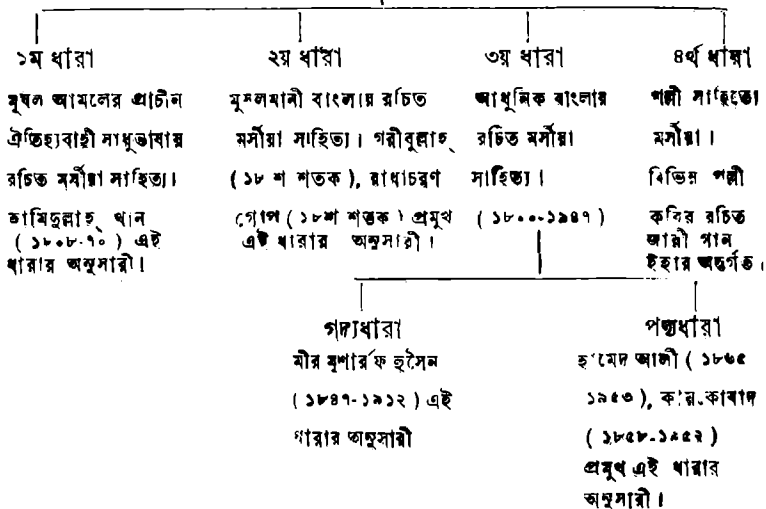 ১ম ধারা
মুঘল আমলের প্রাচীন
ঐতিহ্যবাহী সাধুভাষায়
রচিত মর্সীয়া সাহিত্য।
হামিদুল্লাহ্ খান
( ১৮০৮-৭০ ) এই
ধারার অনুসারী।
২য় ধারা
মুসলমানী বাংলায় রচিত
মর্সীয়া সাহিত্য। গরীবুল্লাহ্
( ১৮ শ শতক ), রাধাচরণ
গোপ ( ১৮শ শতক ) প্রমুখ
এই ধারার অনুসারী।
৩য় ধারা
আধুনিক বাংলায়
রচিত মর্সীয়া
সাহিত্য।
( ১৮০০-১৯৪৭ )
৪র্থ ধারা
পল্লী সাহিত্যে
মর্সীয়া।
বিভিন্ন পল্লী
কবির রচিত
জারী গান
ইহার অন্তর্গত।
গদ্যধারা
মীর মুশার্রফ হুসৈন
( ১৮৪৭-১৯১২ ) এই
ধারার অনুসারী
পদ্যধারা
হামেদ আলী ( ১৮৬৫
১৯৫৩ ), কায়কোবাদ
( ১৮৫৮-১৯৫২ )
প্রমুখ এই ধারার
অনুসারী।